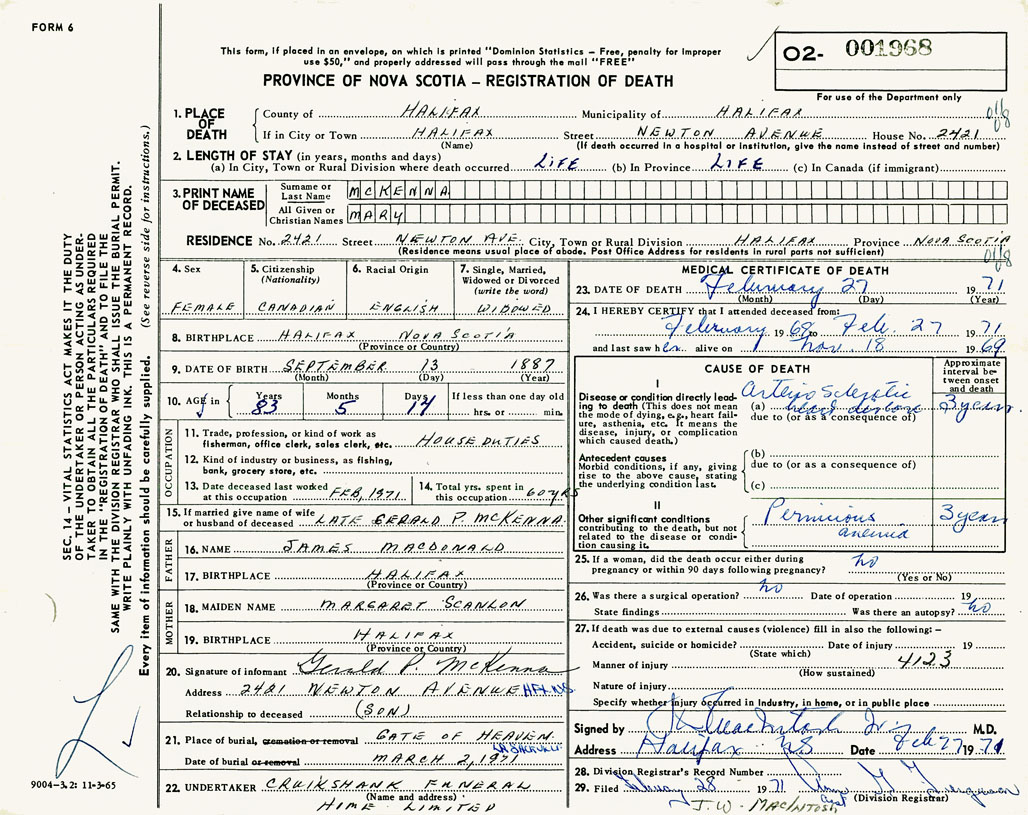 FORM 6
This form, if placed in an envelope, on which is printed "Dominion Statistics – Free, penalty for improper
use $50," and properly addressed will pass through the mail "FREE"
O2- 001968
For use of the Department only
PROVINCE OF NOVA SCOTIA – REGISTRATION OF DEATH
SEC. 14 – VITAL STATISTICS ACT MAKES IT THE DUTY
OF THE UNDERTAKER OR PERSON ACTING AS UNDER-
TAKER TO OBTAIN ALL THE PARTICULARS REQUIRED
IN THE "REGISTRATION OF DEATH" AND TO FILE THE
SAME WITH THE DIVISION REGISTRAR WHO SHALL ISSUE THE BURIAL PERMIT.
WRITE PLAINLY WITH UNFADING INK. THIS IS A PERMANENT RECORD.
Every item of information should be carefully supplied. (See reverse side for instructions.)
1. PLACE OF DEATH County of HALIFAX Municipality of HALIFAX
If in City or Town HALIFAX Street NEWTON AVENUE House No. 2421
(Name) (If death occurred in a hospital or institution, give the name instead of street and number)
2. LENGTH OF STAY (in years, months and days)
(a) In City, Town or Rural Division where death occurred LIFE (b) In Province LIFE (c) In Canada (if immigrant)
3. PRINT NAME OF DECEASED Surname or Last Name MCKENNA
All Given or Christian Names MARY
RESIDENCE No. 2421 Street NEWTON AVE. City, Town or Rural Division HALIFAX Province NOVA SCOTIA
(Residence means usual place of abode. Post Office Address for residents in rural parts not sufficient)
4. Sex 5. Citizenship (Nationality) 6. Racial Origin 7. Single, Married, Widowed or Divorced (write the word)
FEMALE CANADIAN ENGLISH WIDOWED
8. BIRTHPLACE HALIFAX NOVA SCOTIA
(Province or Country)
9. DATE OF BIRTH SEPTEMBER 13 1887
(Month) (Day) (Year)
10. AGE in Years Months Days If less than one day old
83 5 14 hrs. or min.
OCCUPATION
11. Trade, profession, or kind of work as
fisherman, office clerk, sales clerk, etc. HOUSE DUTIES
12. Kind of industry or business, as fishing,
bank, grocery store, etc.
13. Date deceased last worked
at this occupation FEB, 1971
14. Total yrs. spent in
this occupation 60 YRS
15. If married give name of wife
or husband of deceased LATE GERALD P. MCKENNA
FATHER
16. NAME JAMES MACDONALD
17. BIRTHPLACE HALIFAX
(Province or Country)
MOTHER
18. MAIDEN NAME MARGARET SCANLON
19. BIRTHPLACE HALIFAX
(Province or Country)
20. Signature of informant Gerald P. McKenna
Address 2421 NEWTON AVENUE HFX NS
Relationship to deceased (SON)
21. Place of burial, cremation or removal GATE OF HEAVEN
Date of burial or removal MARCH 2, 1971
22. UNDERTAKER CRUIKSHANK FUNERAL
(Name and address)
HOME LIMITED
9004-3.2: 11-3-65
MEDICAL CERTIFICATE OF DEATH
23. DATE OF DEATH February 27 1971
(Month) (Day) (Year)
24. I HEREBY CERTIFY that I attended deceased from:
February 1969 to Feb. 27 1971
and last saw her alive on Nov. 18 1969
CAUSE OF DEATH
Approximate interval between onset and death
I
Disease or condition directly lead-
ing to death (This does not mean
the mode of dying, e.g., heart fail-
ure, asthenia, etc. It means the
disease, injury, or complication
which caused death.)
(a) Arterio Sclerotic heart disease 3 years
due to (or as a consequence of)
Antecedent causes
Morbid conditions, if any, giving
rise to the above cause, stating
the underlying condition last.
(b)
due to (or as a consequence of)
(c)
II
Other significant conditions
contributing to the death, but not
related to the disease or condi-
tion causing it.
Pernicious anemia 3 years
25. If a woman, did the death occur either during
pregnancy or within 90 days following pregnancy? no
(Yes or No)
26. Was there a surgical operation? no Date of operation 19
State findings Was there an autopsy? no
27. If death was due to external causes (violence) fill in also the following: –
Accident, suicide or homicide? Date of injury 19
(State which)
Manner of injury 4123
(How sustained)
Nature of injury
Specify whether injury occurred in Industry, in home, or in public place
Signed by M.D.
Address Halifax NS Date Feb 27 1971
28. Division Registrar's Record Number
29. Filed February 28 1971
(Division Registrar)
J.W. MACINTOSH